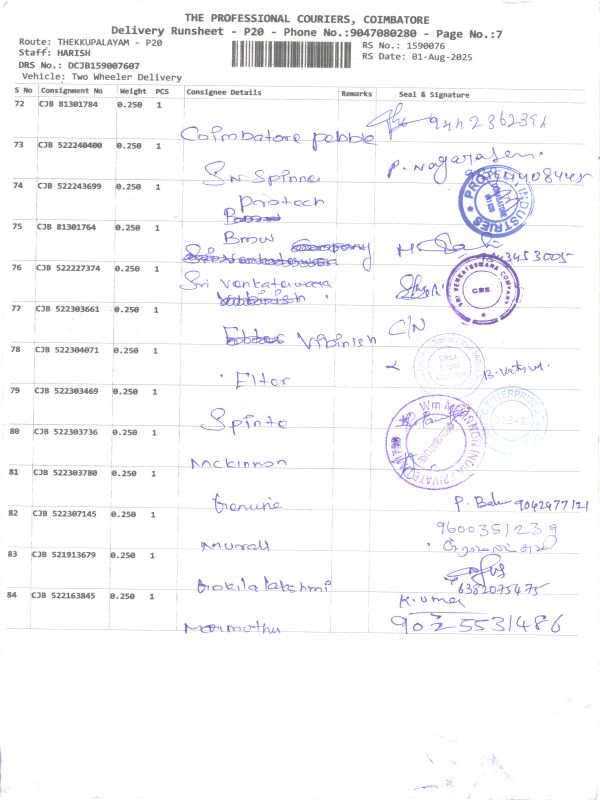 THE PROFESSIONAL COURIERS, COIMBATORE
Delivery Runsheet - P20 - Phone No.:9047080280 - Page No.:7
Route: THEKKUPALAYAM - P20
RS No.: 1590076
Staff: HARISH
RS Date: 01-Aug-2025
DRS No.: DCJB159007607
Vehicle: Two Wheeler Delivery
S No Consignment No Weight PCS Consignee Details Remarks Seal & Signature
72 CJB 81301784 0.250 1
Coimbatore pebble
73 CJB 522240400 0.250 1
Sri Spinner
74 CJB 522243699 0.250 1
Protech
PROTECH INDUSTRIES
75 CJB 81301764 0.250 1
BMW
76 CJB 522227374 0.250 1
Sri Venkateswara
SRI VENKATESWARA COMPANY
CBE
77 CJB 522303661 0.250 1
Vibinish
C/N
78 CJB 522304071 0.250 1
Eltor
79 CJB 522303469 0.250 1
Spinto
80 CJB 522303736 0.250 1
Mckinnon
Wm MCKINNON INDIA PRIVATE LIMITED
81 CJB 522303780 0.250 1
Genuine
P. Balu 9042477121
82 CJB 522307145 0.250 1
Murali
9600351239
83 CJB 521913679 0.250 1
Gokila lakshmi
6382075475
84 CJB 522163845 0.250 1
K. umar
Marimuthu
9025531486